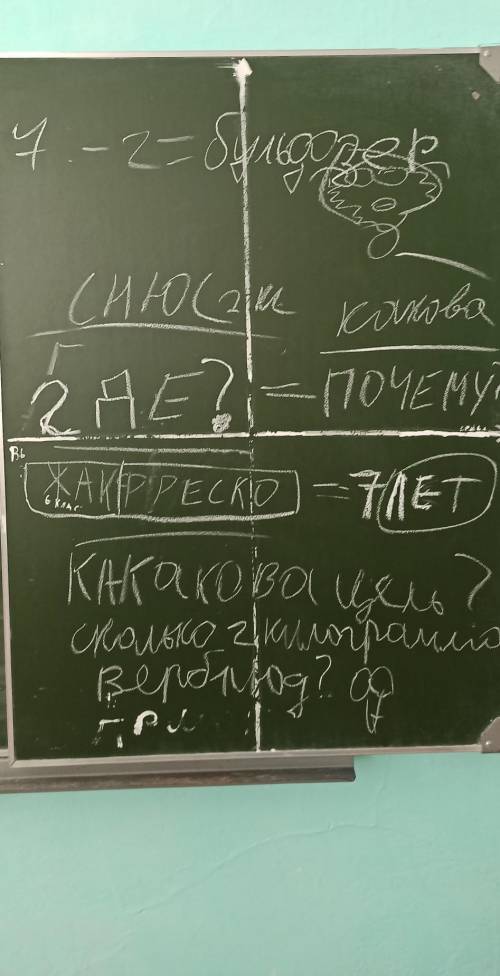 7 - 2 = бульдозер
СНЮС 2 кг какова
Г
2 ДЕ? = ПОЧЕМУ?
ЖАК ФРЕСКО = 7 ЛЕТ
6 класс
КАКаКОВА цель?
сколько 2 килограмма
верблюд?